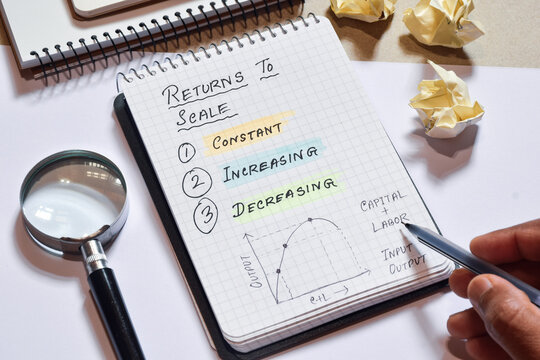 RETURNS TO
SCALE
1 CONSTANT
2 INCREASING
3 DECREASING
CAPITAL
+
LABOR
INPUT
OUTPUT
OUTPUT